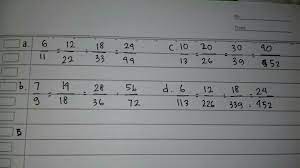 a. 6/11 = 12/22 = 18/33 = 24/44 c. 10/13 = 20/26 = 30/39 = 40/52
b. 7/9 = 14/18 = 28/36 = 56/72 d. 6/113 = 12/226 = 18/339 = 24/452